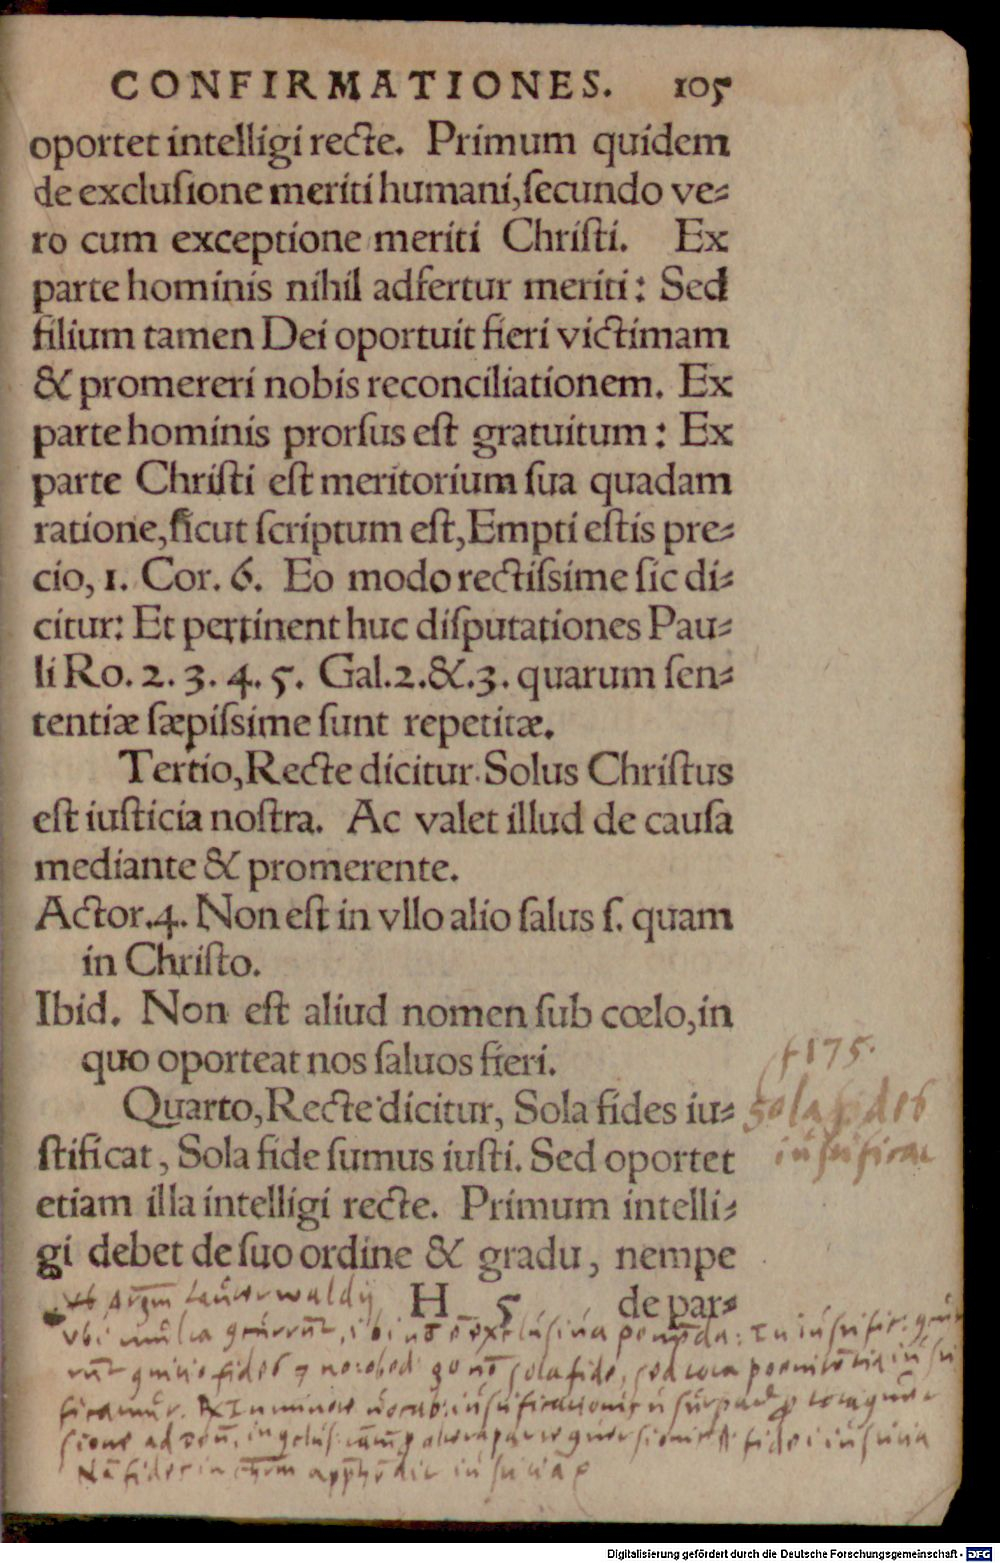 CONFIRMATIONES. 105
oportet intelligi recte. Primum quidem
de excluſione meriti humani, ſecundo ve-
ro cum exceptione meriti Chriſti. Ex
parte hominis nihil adfertur meriti: Sed
filium tamen Dei oportuit fieri victimam
& promereri nobis reconciliationem. Ex
parte hominis prorſus eſt gratuitum: Ex
parte Chriſti eſt meritorium ſua quadam
ratione, ſicut ſcriptum eſt, Empti eſtis pre-
cio, 1. Cor. 6. Eo modo rectiſsime ſic di-
citur: Et pertinent huc diſputationes Pau-
li Ro. 2. 3. 4. 5. Gal. 2. &. 3. quarum ſen-
tentiæ ſæpiſsime ſunt repetitæ.
Tertio, Recte dicitur Solus Chriſtus
eſt iuſticia noſtra. Ac valet illud de cauſa
mediante & promerente.
Actor. 4. Non eſt in vllo alio ſalus ſ. quam
in Chriſto.
Ibid. Non eſt aliud nomen ſub cœlo, in
quo oporteat nos ſaluos fieri.
Quarto, Recte dicitur, Sola fides iu-
ſtificat, Sola fide ſumus iuſti. Sed oportet
etiam illa intelligi recte. Primum intelli-
gi debet de ſuo ordine & gradu, nempe
H 5 de par-
175.
Sola fides
iuſtificat
ſola fide, ſed
fides in
Digitalisierung gefördert durch die Deutsche Forschungsgemeinschaft - DFG